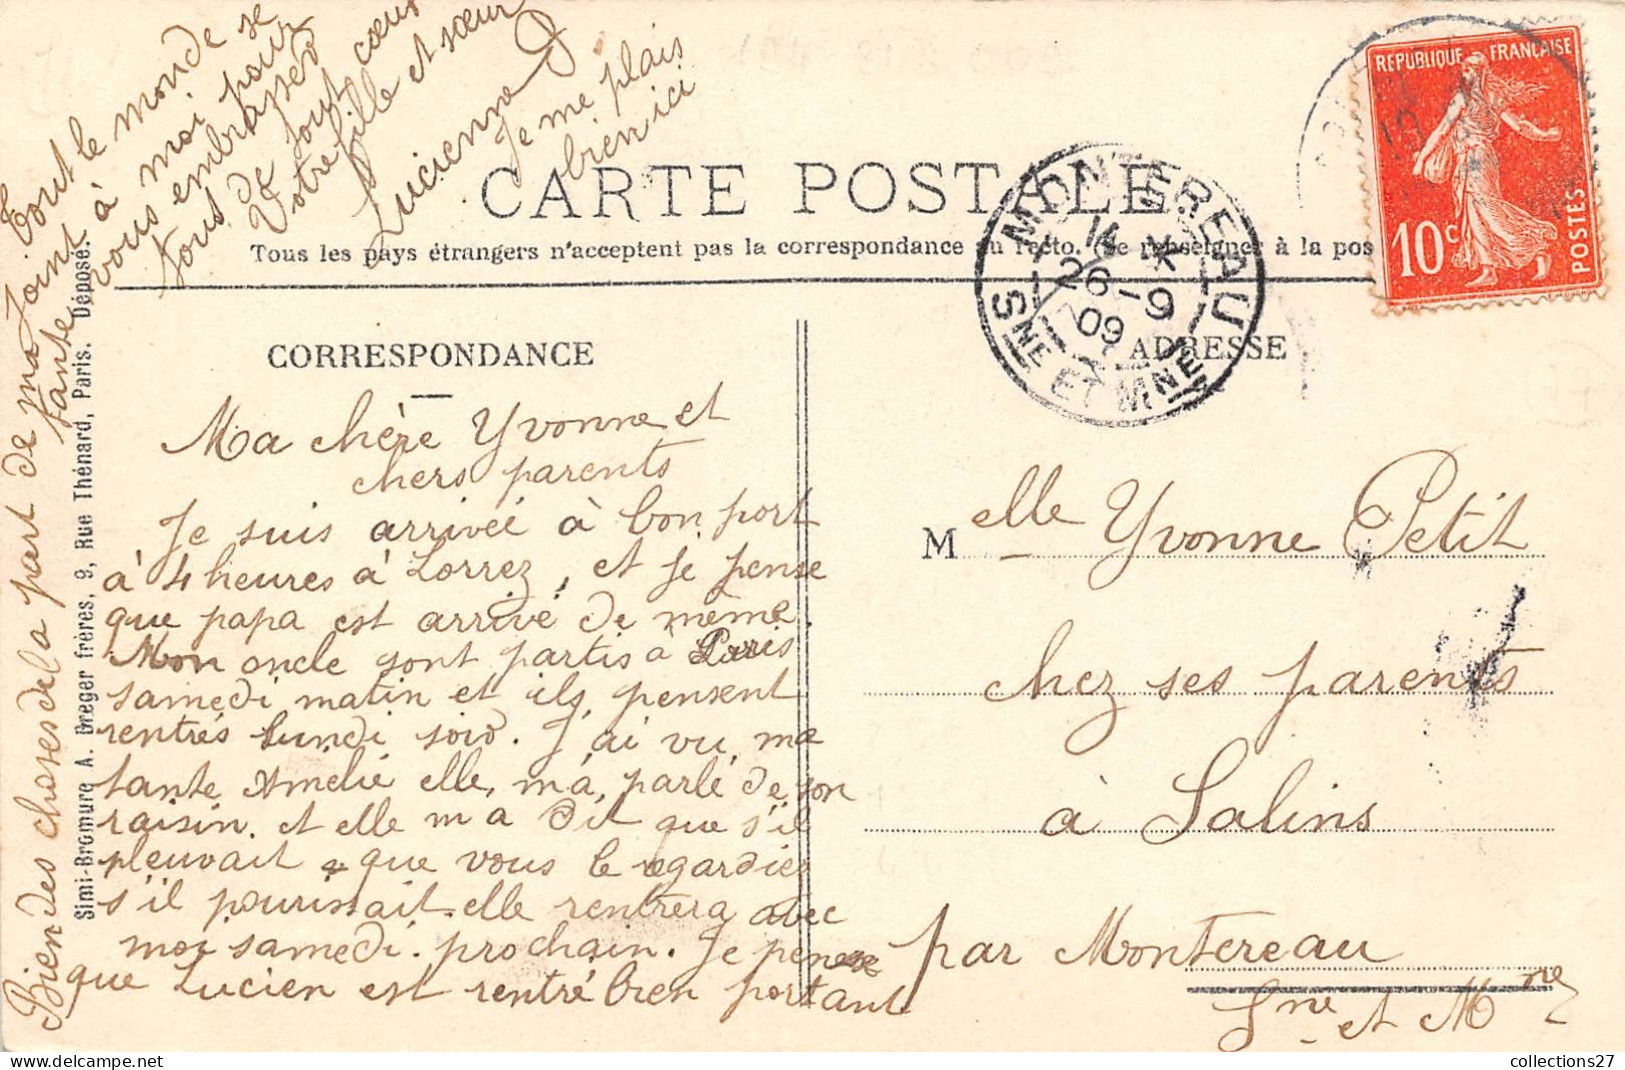 CARTE POSTALE
Tous les pays étrangers n'acceptent pas la correspondance au recto. (Se renseigner à la pos
REPUBLIQUE FRANÇAISE
10c
POSTES
MONTEREAU
26-9
09
SNE ET MNE
CORRESPONDANCE
ADRESSE
Ma chère Yvonne et
chers parents
Je suis arrivée à bon port
à 4 heures à Lorrez, et je pense
que papa est arrivé de même.
Mon oncle sont partis à Paris
samedi matin et ils, pensent
rentrés Lundi soir. J'ai vu, ma
tante Amelie elle, m'a, parlé de son
raisin. et elle m a dit que s'il
pleuvait que vous le regardier
s'il pourissait. elle rentrera avec
moi samedi. prochain. Je pense
que Lucien est rentré bien portant
Bien des choses de la part de ma
tante
Tout le monde se
joint à moi pour
vous embrasser
tous de tout cœur
Votre fille et sœur
Lucienne
Je me plais
bien ici
Simi-Bromure A. Breger frères, 9, Rue Thénard, Paris. Déposé.
Melle Yvonne Petit
chez ses parents
à Salins
par Montereau
Sne et Mne
collections27